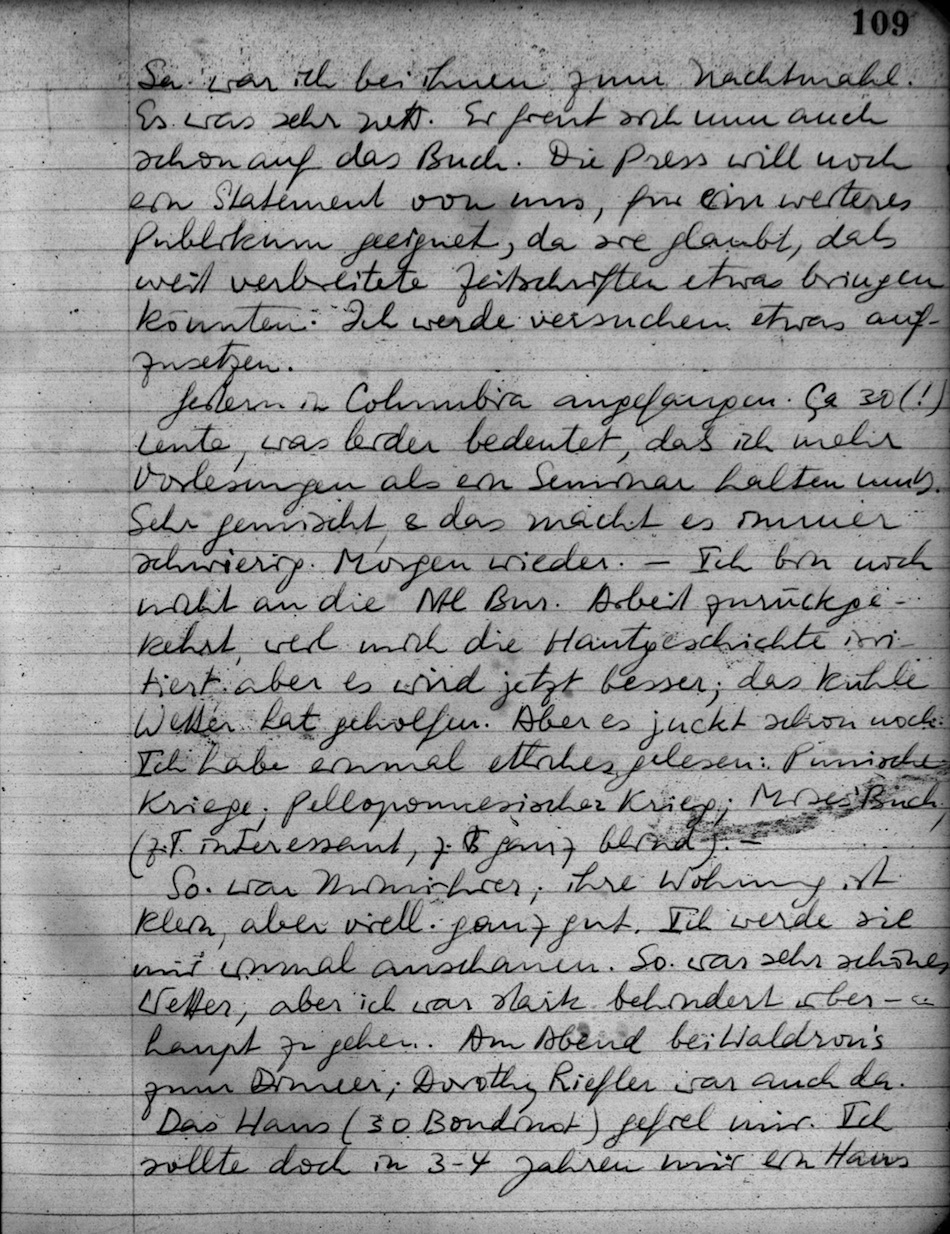 109
Sa. war ich bei ihnen zum Nachtmahl.
Es was sehr nett. Er freut sich nun auch
schon auf das Buch. Die Press will noch
ein Statement von uns, für ein weiteres
Publikum geeignet, da sie glaubt, dass
weit verbreitete Zeitschriften etwas bringen
könnten. Ich werde versuchen etwas auf-
zusetzen.
Gestern in Columbia angefangen. Ca 30 (!)
Leute, was leider bedeutet, dass ich mehr
Vorlesungen als ein Seminar halten muss.
Sehr gemischt, & das macht es immer
schwierig. Morgen wieder. – Ich bin noch
nicht an die Ntl Bur. Arbeit zurückge-
kehrt, weil mich die Hautgeschichte irri-
tiert. aber es wird jetzt besser; das kühle
Wetter hat geholfen. Aber es juckt schon noch.
Ich habe einmal etliches gelesen: Punische
Kriege; Pelloponnesischer Krieg; Moses' Buch
(z.T. interessant, z.T ganz blind). –
So. war ; ihre Wohnung ist
klein, aber viell. ganz gut. Ich werde sie
mir einmal anschauen. So. war sehr schönes
Wetter, aber ich war stark behindert über-
haupt zu gehen. Am Abend bei Waldron's
zum Dinner; Dorothy Riefler war auch da.
Das Haus (30 Boudinot) gefiel mir. Ich
sollte doch in 3-4 Jahren mir ein Haus